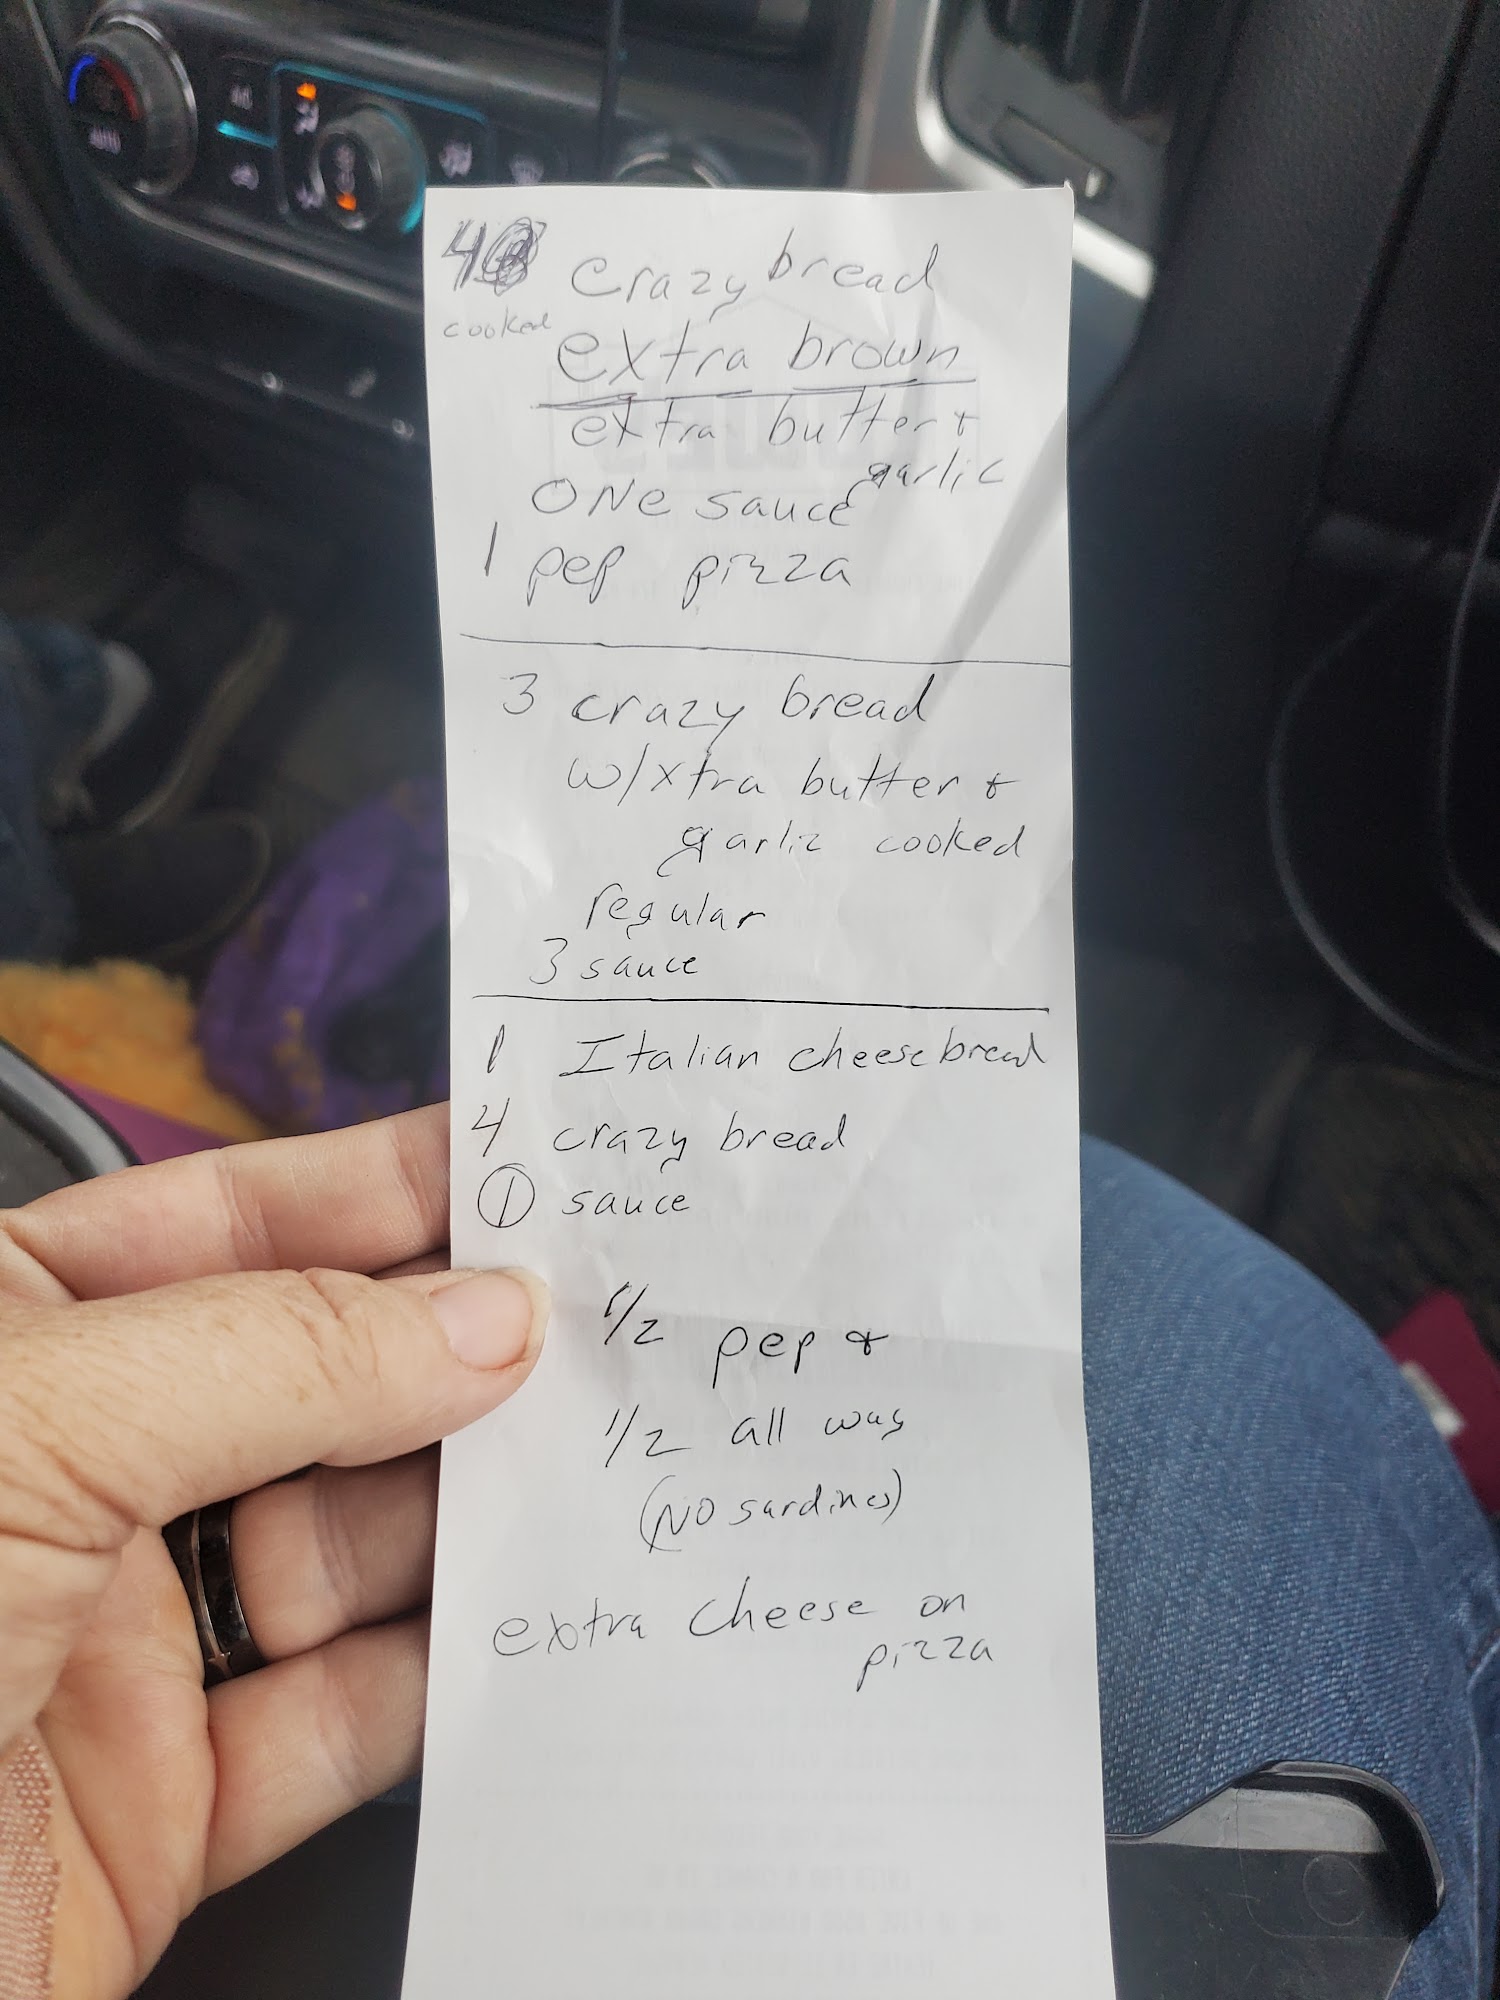 4 crazy bread
cooked
extra brown
extra butter &
garlic
ONe sauce
1 pep pizza
3 crazy bread
w/xtra butter &
garlic cooked
regular
3 sauce
1 Italian cheese bread
4 crazy bread
1 sauce
1/2 pep &
1/2 all way
(NO sardines)
extra cheese on
pizza